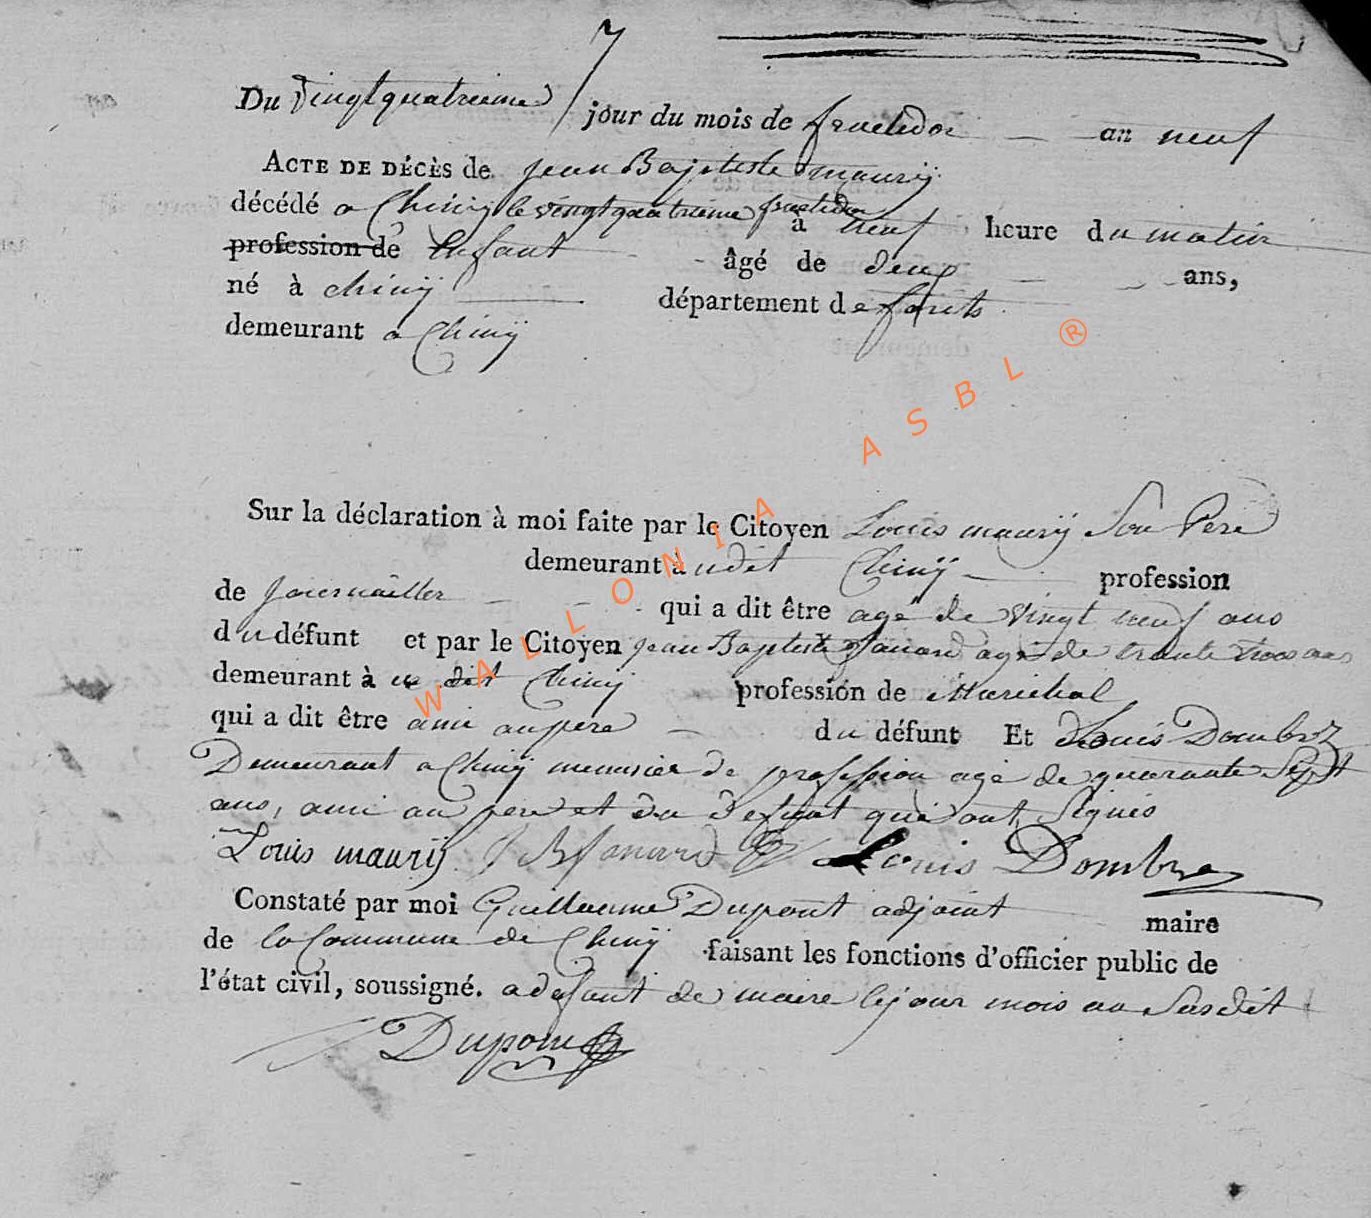 7
Du vingtquatrieme jour du mois de fructidor an neuf
ACTE DE DÉCÈS de jean Baptiste maurÿ
décédé a Chinÿ le vingtquatrieme fructidor à neuf heure du matin
profession de Enfant âgé de deux ans,
né à chinÿ département de forets
demeurant a Chinÿ
Sur la déclaration à moi faite par le Citoyen Louis maurÿ Son Pere
demeurant à udit Chinÿ profession
de Journailler qui a dit être agé de vingt neuf ans
du défunt et par le Citoyen jean Baptiste agé de trante trois ans
demeurant à u dit Chinÿ profession de Marichal
qui a dit être ami au pere du défunt Et Louis Dombrez
Demeurant a Chinÿ menusier de profession agé de quarante Sept
ans, ami au pere et du defunt qui ont Signés
Louis maurÿ Louis Dombre
Constaté par moi Guillaume Dupont adjoint maire
de la Commune de Chinÿ faisant les fonctions d'officier public de
l'état civil, soussigné. a defaut de maire les jour mois an Susdit
Dupont
WALLONIA ASBL ®